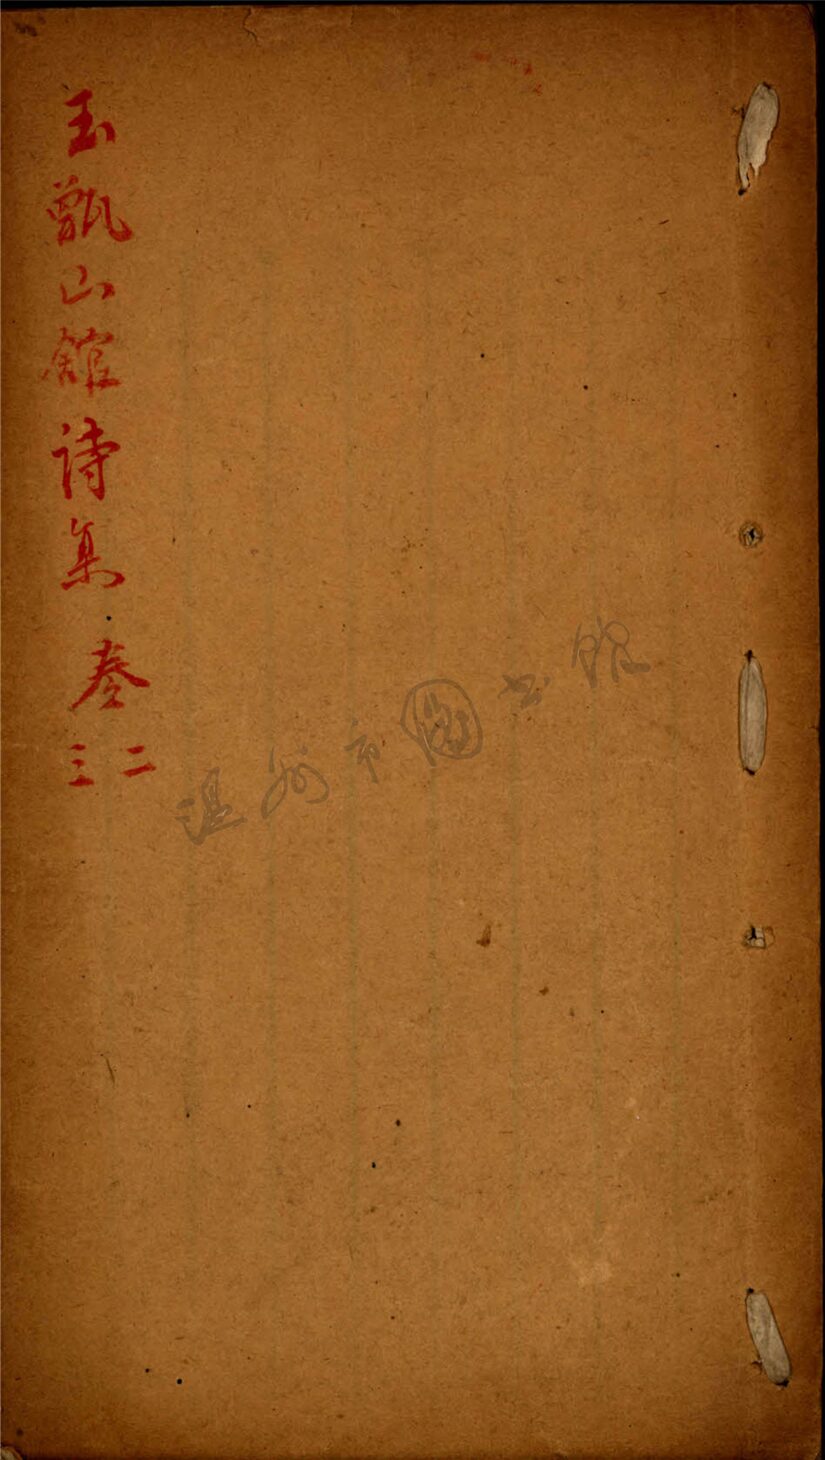 玉甑山館詩集 卷
二
三
温州市图书館